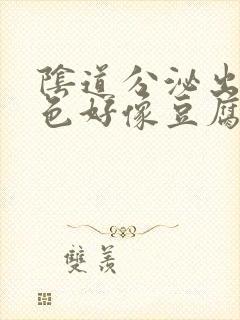 陰道分泌出
色好像豆腐
雙羨